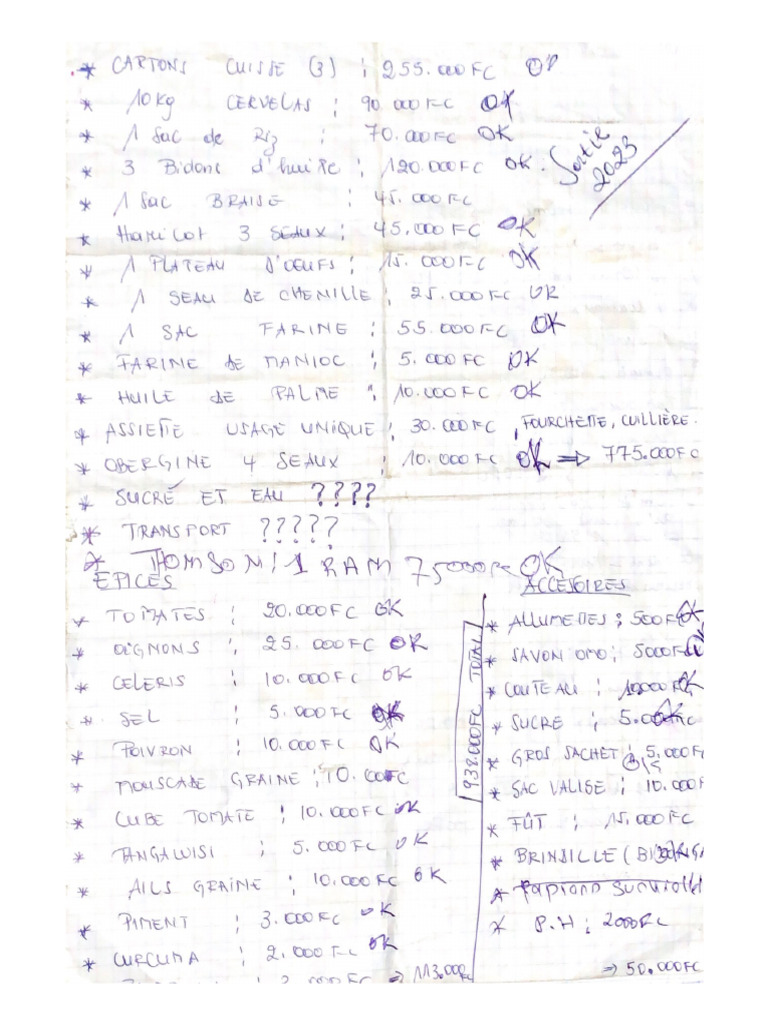 * CARTONS CUISSE (3) : 255.000 FC OK
* 10Kg CERVELAS : 90.000 FC OK
* 1 Sac de Riz : 70.000FC OK
* 3 Bidons d'huile : 120.000FC OK.
Sortie 2023
* 1 Sac BRAISE : 45.000 FC
* HARICOT 3 SEAUX : 45.000 FC OK
* 1 PLATEAU D'OEUFS : 15.000 FC OK
* 1 SEAU DE CHENILLE : 25.000 FC OK
* 1 SAC FARINE : 55.000FC OK
* FARINE DE MANIOC : 5.000FC OK
* HUILE DE PALME : 10.000FC OK
* ASSIETTE USAGE UNIQUE : 30.000 FC, FOURCHETTE, CUILLIÈRE.
* OBERGINE 4 SEAUX : 10.000FC OK => 775.000FC
* SUCRÉ ET EAU ????
* TRANSPORT ?????
* THOMSON : 1 RAM 75000Fc OK
EPICES
* TOMATES : 20.000FC OK
* OIGNONS : 25.000 FC OK
* CELERIS : 10.000FC OK
* SEL : 5.000FC OK
* POIVRON : 10.000FC OK
* MOUSCADE GRAINE : 10.000FC
* CUBE TOMATE : 10.000FC OK
* TANGAWISI : 5.000 FC OK
* AILS GRAINE : 10.000FC OK
* PIMENT : 3.000FC OK
* CURCUMA : 2.000FC OK
=> 113.000Fc
938.000FC TOTAL
ACCESSOIRES
* ALLUMETTES : 500F OK
* SAVON OMO : 5000F
* COUTEAU : 10000F OK
* SUCRE : 5.000FC
* GROS SACHET : 5.000F
* SAC VALISE : 10.000F
* FÛT : 15.000FC
* BRINSILLE
* P.H : 2000Fc
=> 50.000FC